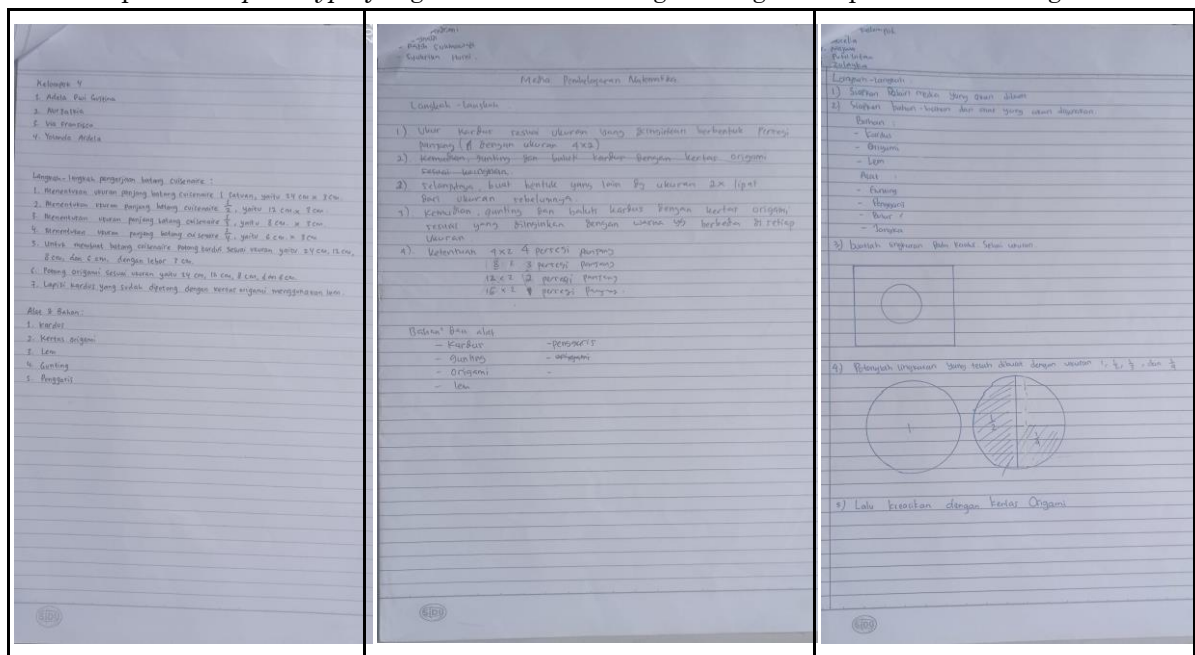 Kelompok 4
1. Adela Puri
2.
3. Via Fransisca
4. Yolanda Ardela
Langkah-langkah pengerjaan batang cuisenaire :
1. Menentukan ukuran panjang batang cuisenaire 1 satuan, yaitu 24 cm x 3 cm.
2. Menentukan ukuran panjang batang cuisenaire yaitu 12 cm x 3 cm.
3. Menentukan ukuran panjang batang cuisenaire yaitu 8 cm x 3 cm.
4. Menentukan ukuran panjang batang cuisenaire yaitu 6 cm x 3 cm.
5. Untuk membuat batang cuisenaire potong kardus sesuai ukuran yaitu 24 cm, 12 cm,
8 cm, dan 6 cm, dengan lebar cm.
6. Potong origami sesuai ukuran yaitu 24 cm, 12 cm, 8 cm, dan 6 cm.
7. Lapisi kardus yang sudah dipotong dengan kertas origami menggunakan lem.
Alat & Bahan :
1. Kardus
2. Kertas origami
3. Lem
4. Gunting
5. Penggaris
Media Pembelajaran Matematika
Langkah-Langkah
1.) Ukur kardus sesuai ukuran yang diinginkan berbentuk Persegi
panjang ( dengan ukuran 4x2)
2.) Kemudian, gunting dan balut kardus dengan kertas origami
2) Selanjutnya, buat bentuk yang lain dg ukuran 2x lipat
dari ukuran sebelumnya.
3) Kemudian, gunting dan balut kardus dengan kertas origami,
sesuai yang diinginkan dengan warna yg berbeda di setiap
ukuran
4). Ketentuan 4x2 4 persegi panjang
8 x 2 3 persegi panjang
12 x 2 2 persegi panjang
16 x 2 1 persegi panjang.
Bahan dan alat
- Kardus -penggaris
- gunting -
- origami -
- lem
Kelompok
Langkah-langkah :
1) Siapkan media yang akan dibuat
2) Siapkan bahan-bahan dan alat yang akan digunakan
Bahan :
- Kardus
- Origami
- Lem
Alat :
- Gunting
- Penggaris
-
- Jangka
3) Buatlah lingkaran pada kardus sesuai ukuran
4) Potonglah lingkaran yang telah dibuat dengan ukuran 1, 1/2, 1/3, dan 1/4
1
1/2
1/4
5) Lalu kreasikan dengan kertas Origami